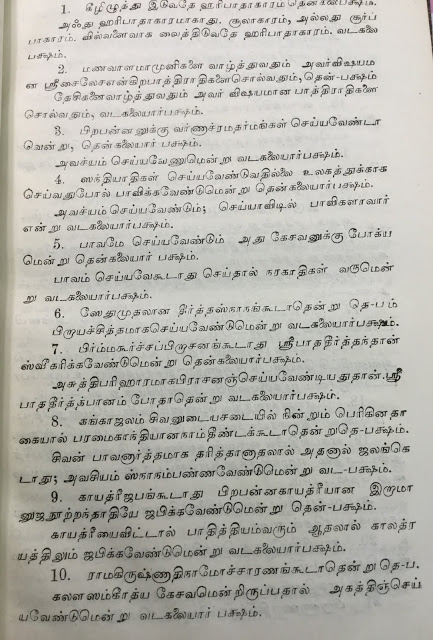 1. கீழிழுத்து இடுவதே ஹரிபாதாகாரம் தென்கலைபக்ஷம்.
அஃது ஹரிபாதாகாரமாகாது. சூலாகாரம், அல்லது சூர்ப்
பாகாரம். வில்வளைவாக வைத்திடுவதே ஹரிபாதாகாரம். வடகலை
பக்ஷம்.
2. மணவாளமாமுனிகளை வாழ்த்துவதும் அவர்விஷயமா
ன ஸ்ரீசைலேசஎன்கிறபாத்திராதிகளைசொல்வதும், தென்-பக்ஷம்
தேசிகனைவாழ்த்துவதும் அவர் விஷயமான பாத்திராதிகளை
சொல்வதும், வடகலையார்பக்ஷம்.
3. பிறபன்னனுக்கு வர்ணாச்ரமதர்மங்கள் செய்யவேண்டா
வென்று, தென்கலையார் பக்ஷம்.
அவச்யம் செய்யவேணுமென்று வடகலையார்பக்ஷம்.
4. ஸந்தியாதிகள் செய்யவேண்டுவதில்லை உலகத்துக்காக
செய்வதுபோல் பாவிக்கவேண்டுமென்று தென்கலையார்பக்ஷம்.
அவச்யம் செய்யவேண்டும்; செய்யாவிடில் பாவிகளாவார்
என்று வடகலையார்பக்ஷம்.
5. பாவமே செய்யவேண்டும் அது கேசவனுக்கு போக்ய
மென்று தென்கலையார் பக்ஷம்.
பாவம் செய்யவேகூடாது செய்தால் நரகாதிகள் வருமென்
று வடகலையார்பக்ஷம்.
6. ஸேதுமுதலான தீர்த்தஸ்நாநங்கூடாதென்று தெ-பம்
பிராயச்சித்தமாகசெய்யவேண்டுமென்று வடகலையார்பக்ஷம்.
7. பிர்ம்மகூர்ச்சப்பிறாசனங்கூடாது ஸ்ரீபாததீர்த்தந்தான்
ஸ்வீகரிக்கவேண்டுமென்று தென்கலையார்பக்ஷம்.
அசுத்திபரிஹாரமாகபிராசனஞ்செய்யவேண்டியதுதான். ஸ்ரீ
பாததீர்த்தபானம் போதாதென்று வடகலையார்பக்ஷம்.
8. கங்காஜலம் சிவனுடையசடையில் நின்றும் பெருகினதா
கையால் பரமைகாந்தியானநாம்தீண்டக்கூடாதென்றுதெ-பக்ஷம்.
சிவன் பாவனார்த்தமாக தரித்தானாதலால் அதனால் ஜலங்கெ
டாது; அவசியம் ஸ்நாநம்பண்ணவேண்டுமென்று வட-பக்ஷம்.
9. காயத்ரீஜபங்கூடாது பிறபன்னகாயத்ரீயான இராமா
னுஜநூற்றந்தாதியே ஜபிக்கவேண்டுமென்று தென்-பக்ஷம்.
காயத்ரீயைவிட்டால் பாதித்தியம்வரும் ஆதலால் காலத்ர
யத்திலும் ஜபிக்கவேண்டுமென்று வடகலையார்பக்ஷம்.
10. ராமகிருஷ்ணாதிநாமோச்சாரணங்கூடாதென்று தெ-ப.
கலௌஸம்கீர்த்ய கேசவமென்றிருப்பதால் அகத்திஞ்செய்
யவேண்டுமென்று வடகலையார் பக்ஷம்.